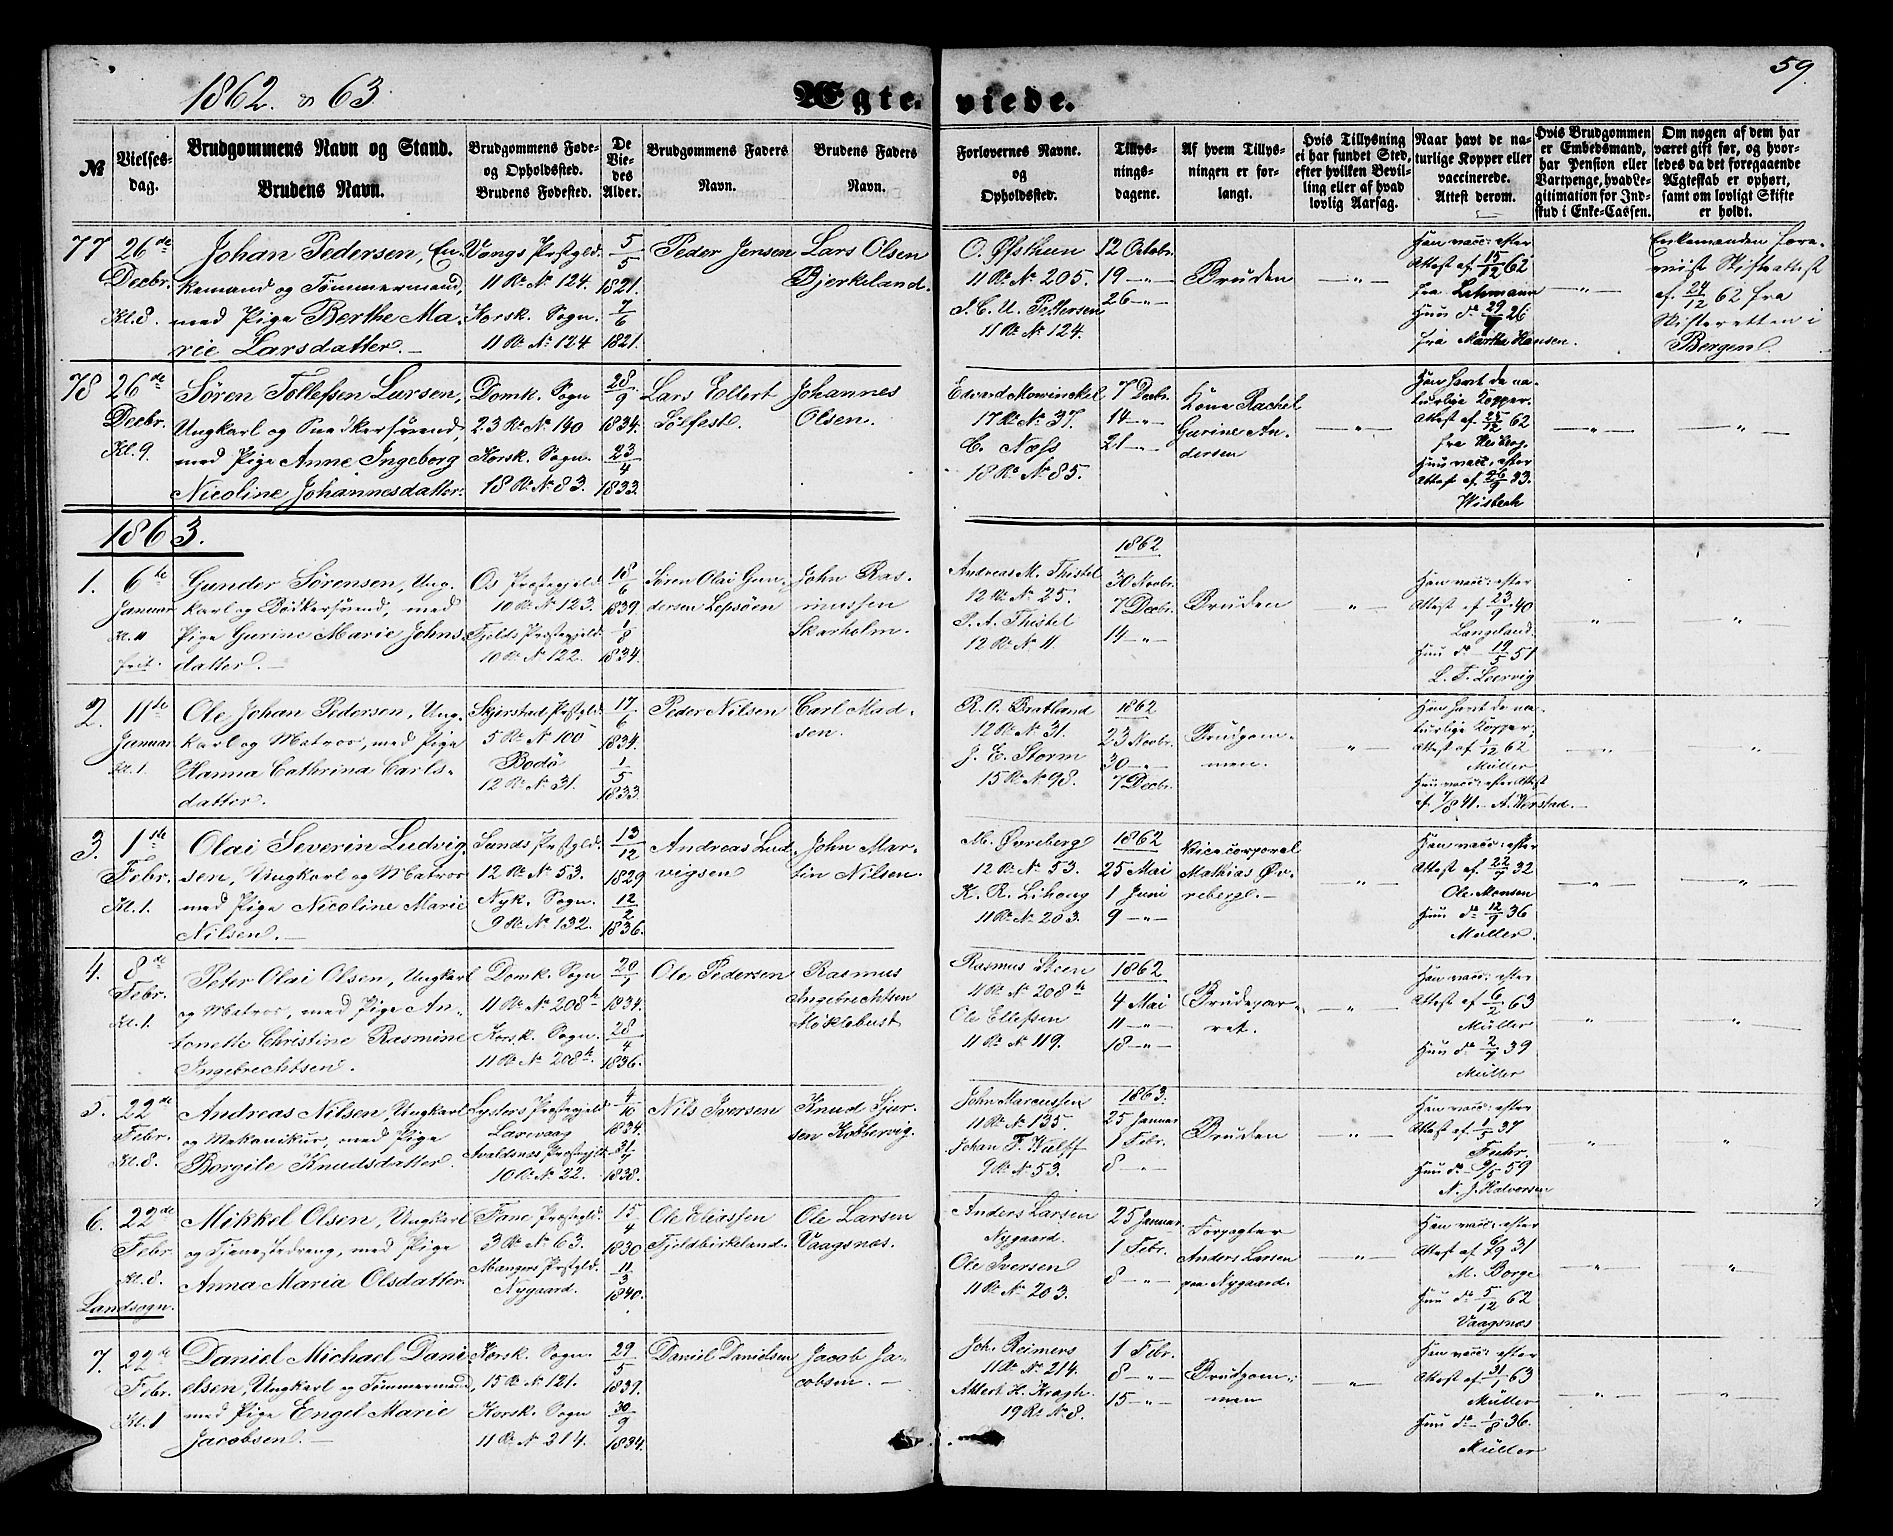 1862 & 63.
Ægteviede.
59.
№
Vielses-
dag.
Brudgommens Navn og Stand.
Brudens Navn.
Brudgommens Føde-
og Opholdssted.
Brudens Fødested.
De
Vie-
des
Alder.
Brudgommens Faders
Navn.
Brudens Faders
Navn.
Forlovernes Navne.
og
Opholdssted.
Tillys-
nings-
dagene.
Af hvem Tillys-
ningen er for-
langt.
Hvis Tillysning
ei har fundet Sted,
efter hvilken Bevil-
ling eller af hvad
lovlig Aarsag.
Naar havt de na-
turlige Kopper eller
vaccinerede.
Attest derom.
Hvis Brudgommen
er Embedsmand,
har Pension eller
Vartpenge, hvad Le-
gitimation for Ind-
skud i Enke-Cassen.
Om nogen af dem har
været gift før, og hvor-
ledes da det foregaaende
Ægteskab er ophørt,
samt om lovligt Skifte
er holdt.
77
26de
Decbr.
Kl. 8.
Johan Pedersen, En-
kemand og Tømmermand,
med Pige Berthe Ma-
rie Larsdatter. —
Vangs Præstgjld.
11 R. No 124.
Korsk. Sogn.
11 R. No 124
5/5
1821.
7/6
1821.
Peder Jensen
Lars Olsen
Bjerkeland.
O. Øfsthun
11 R. No 205.
J. C. U. Pettersen
11 R. No 124.
12 Octobr.
19 — " —
26 — " —
Bruden
— " —
Han vacc: efter
Attest af 15/12 62
fra Lehmann
Hun do 29/7 26
fra Martha Hansen.
— " —
Enkemanden fore-
viist Skifteattest
af 24/12 62 fra
Skifteretten i
Bergen.
78
26de
Decbr.
Kl. 9.
Søren Tollefsen Larsen,
Ungkarl og Snedkersvend,
med Pige Anne Ingeborg
Nicoline Johannesdatter.
Domk. Sogn
23 R. No 140
Korsk. Sogn.
18 R. No 83.
28/9
1834.
23/4
1833.
Lars Ellert
Sølfest.
Johannes
Olsen.
Edvard Mowinckel
17 R. No 37.
C. Næss
18 R. No 85.
7 Decbr.
14 — " —
21 — " —
Kone Rachel
Gurine An-
dersen
— " —
Han havt de na-
turlige Kopper.
Attest af 25/12 62
fra Heiberg.
Hun vacc: efter
Attest af 26/9 33.
Wisbech
— " —
— " —
1863.
1.
6te
Januar
Kl. 11
frit.
Gunder Sørensen, Ung-
karl og Bødkersvend, med
Pige Gurine Marie Johns-
datter. —
Os Præstegjeld.
10 R. No 123.
Fjelds Præstegjeld.
10 R. No 122.
18/6
1839.
1/8
1834.
Søren Olai Gun-
dersen Lepsøen
John Ras-
mussen
Skarholm.
Andreas M. Thistel
12 R. No 25.
P. A. Thistel
12 R. No 11.
1862
30 Novbr.
7 Decbr.
14 — " —
Bruden
" —
Han vacc: efter
Attest af 23/9 40
Længeland.
Hun do 19/5 51
L. T. Leervig
— " —
— " —
2.
11te
Januar
Kl. 1.
Ole Johan Pedersen, Ung-
karl og Matros, med Pige
Hanna Cathrina Carls-
datter.
Skjerstad Præstgld.
5 R. No 100
Bodø
12 R. No 31.
17/6
1834.
1/5
1833.
Peder Nilsen
Carl Mad-
sen.
R. O. Bratland
12 R. No 31.
J. E. Storm
15 R. No 98.
1862
23 Novbr.
30 — " —
7 Decbr.
Brudgom-
men.
" —
Han havt de na-
turlige Kopper;
Attest af 1/12 62
Müller
Hun vacc: efter Attest
af 7/8 41 — A. Verstad. —
— " —
"
3.
1ste
Febr.
Kl. 1.
Olai Severin Ludvig-
sen, Ungkarl og Matros
med Pige Nicoline Marie
Nilsen. —
Sunds Præstgjld.
12 R. No 53.
Nyk. Sogn.
9 R. No 132.
13/12
1829
12/2
1836.
Andreas Lud-
vigsen
John Mar-
tin Nilsen.
M. Øvreberg
12 R. No 53.
K. R. Lihoug
11 R. No 203.
1862
25 Mai
1 Juni
9 — " —
Vicecorporal
Mathias Øv-
reberg. —
— " —
Han vacc: efter
Attest af 22/7 32
Ole Monsen
Hun do 12/9 36
Müller.
— " —
— " —
4.
8de
Febr.
Kl. 1.
Peter Olai Olsen, Ungkarl
og Matros, med Pige An-
tonette Christine Rasmine
Ingebrechtsen.
Domk. Sogn
11 R. No 208b
Korsk. Sogn.
11 R. No 208b.
20/1
1834.
28/4
1836.
Ole Pedersen
Rasmus
Ingebrechtsen
Møklebust
Rasmus Steen
11 R. No 208b
Ole Ellefsen
11 R. No 119.
1862
4 Mai
11 — " —
18 — " —
Brudepar-
ret.
— " —
Han vacc: efter
Attest af 6/2 63
Müller
Hun do 2/7 39
Müller
— " —
"
5.
22de
Febr.
Kl. 8.
Andreas Nilsen, Ungkarl
og Mekanikur, med Pige
Borgile Knudsdatter.
Lysters Præstegjeld
Larevaag
Avaldsnes Præstegjld.
10 R. No 22.
4/10
1834.
31/7
1838.
Nils Iversen
Knud Sjur-
sen Kobbervig.
John Marcussen
11 R. No 135.
Johan F. Wulff
9 R. No 53.
1863.
25 Januar
1 Febr.
8 — " —
Bruden
— " —
Han vacc: efter
Attest af 1/5 37
Fuhr.
Hun do 9/5 59
N. J. Halvorsen
"
"
6.
22de
Febr.
Kl. 8.
Landsogn.
Mikkel Olsen, Ungkarl
og Tjenestedreng, med Pige
Anna Maria Olsdatter.
Fane Præstegld.
3 R. No 63.
Mangers Præstgld.
Nygaard.
15/4
1830
11/3
1840.
Ole Eliassen
Fjeldbirkeland.
Ole Larsen
Vaagsnæs.
Anders Larsen
Nygaard.
Ole Iversen
11 R. No 203.
25 Januar.
1 Febr.
8 — " —
Forpagter
Anders Larsen
paa Nygaard.
— " —
Han vacc: efter
Attest af 6/9 31
M. Borge
Hun do 5/12 62
Vaagsnæs
— " —
"
7.
22de
Febr.
Kl. 1
Daniel Michael Dani-
elsen, Ungkarl og Tømmermand,
med Pige Engel Marie
Jacobsen. —
Korsk. Sogn.
15 R. No 121.
Korsk. Sogn
11 R. No 214.
29/5
1839.
30/9
1834.
Daniel Danielsen
Jacob Ja-
cobsen. —
Joh. Reimers
11 R. No 214.
Albert H. Kragh.
19 R. No 8.
1 Febr.
8 — " —
15 — " —
Brudgom-
men
— " —
Han vacc: efter
Attest af 31/1 63
Müller
Hun do 1/8 36.
Müller
— " —
"